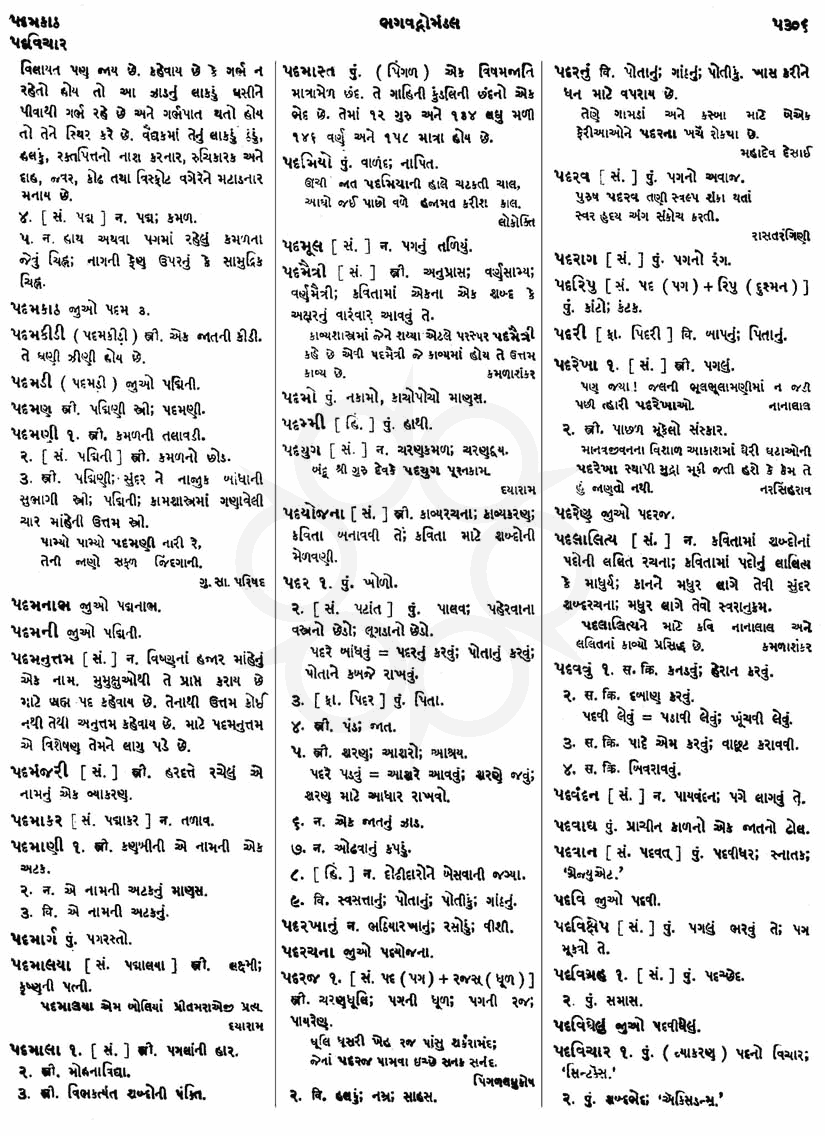 પદમકાઠ
ભગવદ્ગોમંડલ
૫૩૦૬
પદવિચાર
વિલાયત પણ જાય છે. કહેવાય છે કે ગર્ભ ન
રહેતો હોય તો આ ઝાડનું લાકડું ઘસીને
પીવાથી ગર્ભ રહે છે અને ગર્ભપાત થતો હોય
તો તેને સ્થિર કરે છે. વૈદ્યકમાં તેનું લાકડું ઠંડું,
હલકું, રક્તપિત્તનો નાશ કરનાર, રુચિકારક અને
દાહ, જ્વર, કોઢ તથા વિસ્ફોટ વગેરેને મટાડનાર
મનાય છે.
૪. [ સં. પદ્મ ] ન. પદ્મ; કમળ.
૫. ન. હાથ અથવા પગમાં રહેલું કમળના
જેવું ચિહ્ન; નાગની ફેણ ઉપરનું કે સામુદ્રિક
ચિહ્ન.
પદમકાઠ જુઓ પદમ ૩.
પદમકીડી ( પદમકીડ઼ી ) સ્ત્રી. એક જાતની કીડી.
તે ઘણી ઝીણી હોય છે.
પદમડી ( પદમડ઼ી ) જુઓ પદ્મિની.
પદમણ સ્ત્રી. પદ્મિણી સ્ત્રી; પદમણી.
પદમણી ૧. સ્ત્રી. કમળની તલાવડી.
૨. [ સં. પદ્મિની ] સ્ત્રી. કમળનો છોડ.
૩. સ્ત્રી. પદ્મિણી; સુંદર ને નાજુક બાંધાની
સુભાગી સ્ત્રી; પદ્મિની; કામશાસ્ત્રમાં ગણાવેલી
ચાર માંહેની ઉત્તમ સ્ત્રી.
પામ્યો પામ્યો પદમણી નારી રે,
તેની જાણો સફળ જિંદગાની.
ગુ. સા. પરિષદ
પદમનાભ જુઓ પદ્મનાભ.
પદમની જુઓ પદ્મિની.
પદમનુત્તમ [ સં. ] ન. વિષ્ણુનાં હજાર માંહેનું
એક નામ. મુમુક્ષુઓથી તે પ્રાપ્ત કરાય છે
માટે બ્રહ્મ પદ કહેવાય છે. તેનાથી ઉત્તમ કોઈ
નથી તેથી અનુત્તમ કહેવાય છે. માટે પદમનુત્તમ
એ વિશેષણ તેમને લાગુ પડે છે.
પદમંજરી [ સં. ] સ્ત્રી. હરદત્તે રચેલું એ
નામનું એક વ્યાકરણ.
પદમાકર [ સં. પદ્માકર ] ન. તળાવ.
પદમાણી ૧. સ્ત્રી. કણબીની એ નામની એક
અટક.
૨. ન. એ નામની અટકનું માણસ.
૩. વિ. એ નામની અટકનું.
પદમાર્ગ પું. પગરસ્તો.
પદમાલયા [ સં. પદ્માલયા ] સ્ત્રી. લક્ષ્મી;
કૃષ્ણની પત્ની.
પદમાલયા એમ બોલિયાં પ્રીતમરાએજી પ્રત્ય.
દયારામ
પદમાલા ૧. [ સં. ] સ્ત્રી. પગલાંની હાર.
૨. સ્ત્રી. મોહનાવિદ્યા.
૩. સ્ત્રી. વિભક્ત્યંત શબ્દોની પંક્તિ.
પદમાસ્ત પું. ( પિંગળ ) એક વિષમજાતિ
માત્રામેળ છંદ. તે ગાહિની કુંડલિની છંદનો એક
ભેદ છે. તેમાં ૧૨ ગુરુ અને ૧૩૪ લઘુ મળી
૧૪૬ વર્ણ અને ૧૫૮ માત્રા હોય છે.
પદમિયો પું. વાળંદ; નાપિત.
ઊંચી જાત પદમિયાની હાલે ચટકતી ચાલ,
આઘો જઈ પાછો વળે હજામત કરીશ કાલ.
લોકોક્તિ
પદમૂલ [ સં. ] ન. પગનું તળિયું.
પદમૈત્રી [ સં. ] સ્ત્રી. અનુપ્રાસ; વર્ણસામ્ય;
વર્ણમૈત્રી; કવિતામાં એકના એક શબ્દ કે
અક્ષરનું વારંવાર આવવું તે.
કાવ્યશાસ્ત્રમાં જેને શય્યા એટલે પરસ્પર પદમૈત્રી
કહે છે એવી પદમૈત્રી જે કાવ્યમાં હોય તે ઉત્તમ
કાવ્ય છે. કમળાશંકર
પદમો પું. નકામો, કાચોપોચો માણસ.
પદમ્મી [ હિં. ] પું. હાથી.
પદયુગ [ સં. ] ન. ચરણકમળ; ચરણદ્વય.
બંદૂ શ્રી ગુરુ દેવકે પદયુગ પૂરનકામ.
દયારામ
પદયોજના [ સં. ] સ્ત્રી. કાવ્યરચના; કાવ્યકરણ;
કવિતા બનાવવી તે; કવિતા માટે શબ્દોની
મેળવણી.
પદર ૧. પું. ખોળો.
૨. [ સં. પટાંત ] પું. પાલવ; પહેરવાના
વસ્ત્રનો છેડો; લૂગડાનો છેડો.
પદરે બાંધવું = પદરનું કરવું; પોતાનું કરવું;
પોતાને કબજે રાખવું.
૩. [ ફા. પિદર ] પું. પિતા.
૪. સ્ત્રી. પંડ; જાત.
૫. સ્ત્રી. શરણ; આશરો; આશ્રય.
પદરે પડવું = આશરે આવવું; શરણે જવું;
શરણ માટે આધાર રાખવો.
૬. ન. એક જાતનું ઝાડ.
૭. ન. ઓઢવાનું કપડું.
૮. [ હિં. ] ન. દોઢીદારોને બેસવાની જગ્યા.
૯. વિ. સ્વસત્તાનું; પોતાનું; પોતીકું; ગાંઠનું.
પદરખાનું ન. ભઠિયારખાનું; રસોડું; વીશી.
પદરચના જુઓ પદયોજના.
પદરજ ૧. [ સં. પદ ( પગ ) + રજસ્ ( ધૂળ ) ]
સ્ત્રી. ચરણધૂલિ; પગની ધૂળ; પગની રજ;
પાયરેણુ.
ધૂલિ ધૂસરી ખેહ રજ પાંસુ શર્કરામંદ;
જેનાં પદરજ પામવા ઇચ્છે સનક સનંદ.
પિંગળલઘુકોષ
૨. વિ. હલકું; નમ્ર; સાલસ.
પદરનું વિ. પોતાનું; ગાંઠનું; પોતીકું. ખાસ કરીને
ધન માટે વપરાય છે.
તેણે ગામડાં અને કસ્બા માટે બેએક
ફેરીઆઓને પદરના ખર્ચે રોક્યા છે.
મહાદેવ દેસાઈ
પદરવ [ સં. ] પું. પગનો અવાજ.
પુરુષ પદરવ તણી સ્વલ્પ શંકા થતાં
સ્વર હૃદય અંગ સંકોચ કરતી.
રાસતરંગિણી
પદરાગ [ સં. ] પું. પગનો રંગ.
પદરિપુ [ સં. પદ ( પગ ) + રિપુ ( દુશ્મન ) ]
પું. કાંટો; કંટક.
પદરી [ ફા. પિદરી ] વિ. બાપનું; પિતાનું.
પદરેખા ૧. [ સં. ] સ્ત્રી. પગલું.
પણ જ્યા! જલની ભૂલભૂલામણીમાં ન જડી
પછી ત્હારી પદરેખાઓ. નાનાલાલ
૨. સ્ત્રી. પાછળ મૂકેલો સંસ્કાર.
માનવજીવનના વિશાળ આકાશમાં ઘેરી ઘટાઓની
પદરેખા સ્થાપી મુદ્રા મૂકી જતી હશે કે કેમ તે
હું જાણતો નથી. નરસિંહરાવ
પદરેણુ જુઓ પદરજ.
પદલાલિત્ય [ સં. ] ન. કવિતામાં શબ્દોનાં
પદોની લલિત રચના; કવિતામાં પદોનું લાલિત્ય
કે માધુર્ય; કાનને મધુર લાગે તેવી સુંદર
શબ્દરચના; મધુર લાગે તેવો સ્વરાનુક્રમ.
પદલાલિત્યને માટે કવિ નાનાલાલ અને
લલિતનાં કાવ્યો પ્રસિદ્ધ છે. કમળાશંકર
પદવવું ૧. સ. ક્રિ. કનડવું; હેરાન કરવું.
૨. સ. ક્રિ. દબાણ કરવું.
પદવી લેવું = પડાવી લેવું; ખૂંચવી લેવું.
૩. સ. ક્રિ. પાદે એમ કરવું; વાછૂટ કરાવવી.
૪. સ. ક્રિ. બિવરાવવું.
પદવંદન [ સં. ] ન. પાયવંદન; પગે લાગવું તે.
પદવાદ્ય પું. પ્રાચીન કાળનો એક જાતનો ઢોલ.
પદવાન [ સં. પદવત્ ] પું. પદવીધર; સ્નાતક;
‘ગ્રૅજ્યુએટ.’
પદવિ જુઓ પદવી.
પદવિક્ષેપ [ સં. ] પું. પગલું ભરવું તે; પગ
મૂકવો તે.
પદવિગ્રહ ૧. [ સં. ] પું. પદચ્છેદ.
૨. પું. સમાસ.
પદવિઘેલું જુઓ પદવીઘેલું.
પદવિચાર ૧. પું. ( વ્યાકરણ ) પદનો વિચાર;
‘સિન્ટૅક્સ.’
૨. પું. શબ્દભેદ; ‘ઍક્સિડન્સ.’